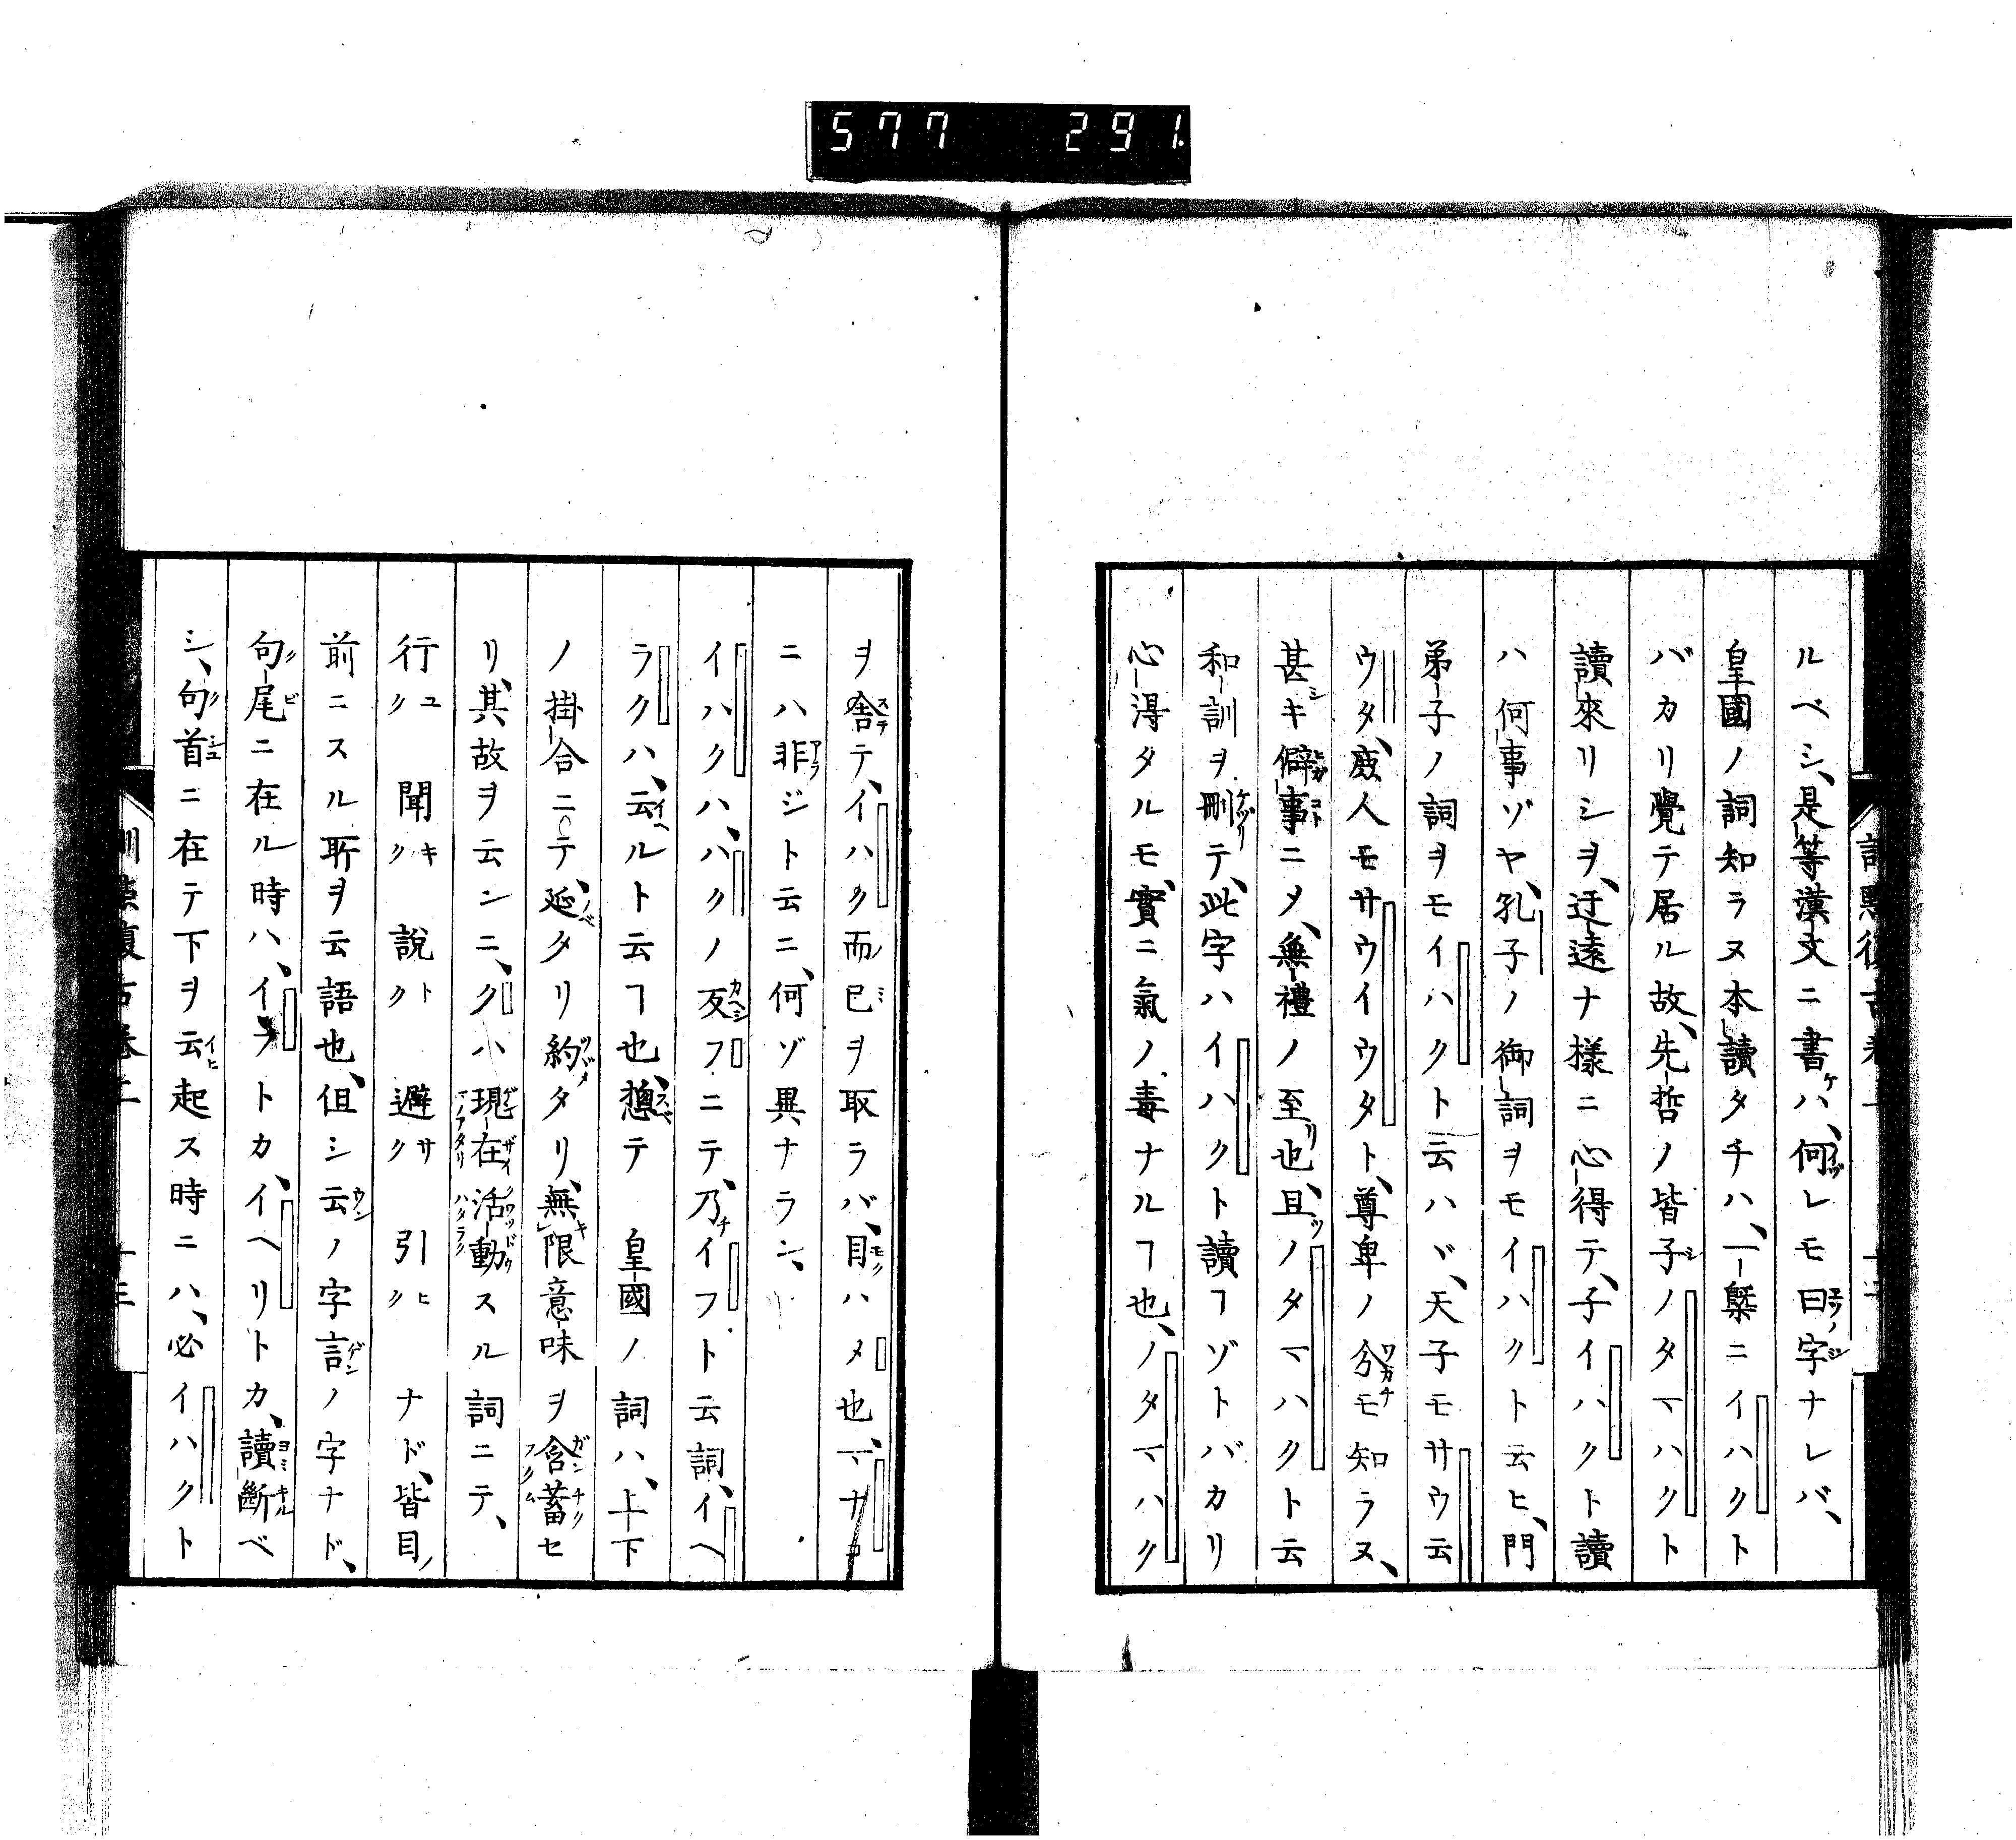 577 291
ルベシ、是等漢文ニ書ケハ、何レモ曰ノ字ナレバ、
皇國ノ詞知ラヌ本讀タチハ、一槩ニイハクト
バカリ覺テ居ル故、先哲ノ皆子ノタマハクト
讀來リシヲ、迂遠ナ樣ニ心得テ、子イハクト讀
ハ何事ゾヤ、孔子ノ御詞ヲモイハクト云ヒ、門
弟子ノ詞ヲモイハクト云ハヾ、天子モサウ云
ウタ、庻人モサウイウタト、尊卑ノ分モ知ラヌ、
甚キ僻事ニメ、無禮ノ至也、且ツノタマハクト云
和訓ヲ刪テ、此字ハイハクト讀ヿゾトバカリ
心得タルモ、實ニ氣ノ毒ナルヿ也、ノタマハク
ヲ舎テ、イハク而已ヲ取ラバ、目ハメ也、マナコ
ニハ非ジト云ニ、何ゾ異ナラン、
イハクハ、ハクノ反フニテ、乃チイフト云詞、イヘ
ラクハ、云ルト云ヿ也、惣テ 皇國ノ詞ハ、上下
ノ掛合ニテ、延タリ約タリ、無限意味ヲ含蓄セ
リ、其故ヲ云ンニ、クハ現在活動スル詞ニテ、
行ク 聞ク 說ク 避ク 引ク ナド、皆目ノ
前ニスル所ヲ云語也、但シ云ノ字言ノ字ナド、
句尾ニ在ル時ハ、イフトカ、イヘリトカ、讀斷ベ
シ、句首ニ在テ下ヲ云起ス時ニハ、必イハクト